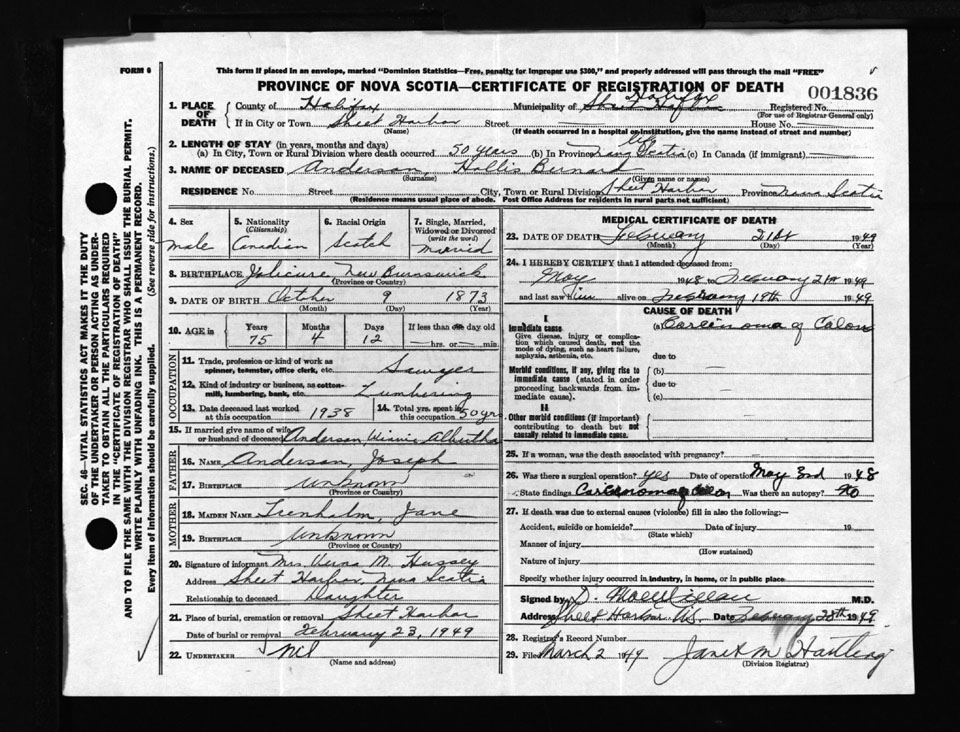 FORM 6
This form if placed in an envelope, marked "Dominion Statistics—Free, penalty for improper use $300," and properly addressed will pass through the mail "FREE"
PROVINCE OF NOVA SCOTIA—CERTIFICATE OF REGISTRATION OF DEATH
001836
1. PLACE OF DEATH
County of Halifax Municipality of Halifax Registered No.
(For use of Registrar General only)
If in City or Town Sheet Harbor Street House No.
(Name) (If death occurred in a hospital or institution, give the name instead of street and number)
2. LENGTH OF STAY (in years, months and days)
(a) In City, Town or Rural Division where death occurred 50 years (b) In Province life Nova Scotia (c) In Canada (if immigrant)
3. NAME OF DECEASED Anderson, Hollis Bernard
(Surname) (Given name or names)
RESIDENCE No. Street City, Town or Rural Division Sheet Harbor Province Nova Scotia
(Residence means usual place of abode. Post Office Address for residents in rural parts not sufficient)
4. Sex
male
5. Nationality
(Citizenship)
Canadian
6. Racial Origin
Scotch
7. Single, Married, Widowed or Divorced
(write the word)
married
8. BIRTHPLACE Jolicure, New Burnswick
(Province or Country)
9. DATE OF BIRTH October 9 1873
(Month) (Day) (Year)
10. AGE in Years Months Days If less than one day old
75 4 12 hrs. or min.
OCCUPATION
11. Trade, profession or kind of work as
spinner, teamster, office clerk, etc. Sawyer
12. Kind of industry or business, as cotton-
mill, lumbering, bank, etc. Lumbering
13. Date deceased last worked
at this occupation 1938
14. Total yrs. spent in
this occupation 50 yrs.
15. If married give name of wife
or husband of deceased Anderson, Winnie Albertha
FATHER
16. NAME Anderson, Joseph
17. BIRTHPLACE Unknown
(Province or Country)
MOTHER
18. MAIDEN NAME Teenholm, Jane
19. BIRTHPLACE Unknown
(Province or Country)
20. Signature of informant Mrs. Verna M. Hussey
Address Sheet Harbor, Nova Scotia
Relationship to deceased Daughter
21. Place of burial, cremation or removal Sheet Harbor
Date of burial or removal February 23, 1949
22. UNDERTAKER
(Name and address)
MEDICAL CERTIFICATE OF DEATH
23. DATE OF DEATH February 21st 1949
(Month) (Day) (Year)
24. I HEREBY CERTIFY that I attended deceased from:
May 1948 to February 21st 1949
and last saw him alive on February 19th 1949
CAUSE OF DEATH
I
Immediate cause
Give disease, injury or complica-
tion which caused death, not the
mode of dying, such as heart failure,
asphyxia, asthenia, etc.
(a) Carcinoma of Colon
due to
Morbid conditions, if any, giving rise to
immediate cause (stated in order
proceeding backwards from im-
mediate cause).
(b)
due to
(c)
II
Other morbid conditions (if important)
contributing to death but not
causally related to immediate cause.
25. If a woman, was the death associated with pregnancy?
26. Was there a surgical operation? yes Date of operation May 3rd 1948
State findings Carcinoma of Colon Was there an autopsy? no
27. If death was due to external causes (violence) fill in also the following:—
Accident, suicide or homicide? Date of injury 19
(State which)
Manner of injury
(How sustained)
Nature of injury
Specify whether injury occurred in industry, in home, or in public place
Signed by M.D.
Address Sheet Harbour N.S. Date February 28th 1949
28. Registrar's Record Number
29. Filed March 2 1949 Janet M Hartling
(Division Registrar)
SEC. 46—VITAL STATISTICS ACT MAKES IT THE DUTY
OF THE UNDERTAKER OR PERSON ACTING AS UNDER-
TAKER TO OBTAIN ALL THE PARTICULARS REQUIRED
IN THE "CERTIFICATE OF REGISTRATION OF DEATH"
AND TO FILE THE SAME WITH THE DIVISION REGISTRAR WHO SHALL ISSUE THE BURIAL PERMIT.
WRITE PLAINLY WITH UNFADING INK. THIS IS A PERMANENT RECORD.
Every item of information should be carefully supplied. (See reverse side for instructions.)